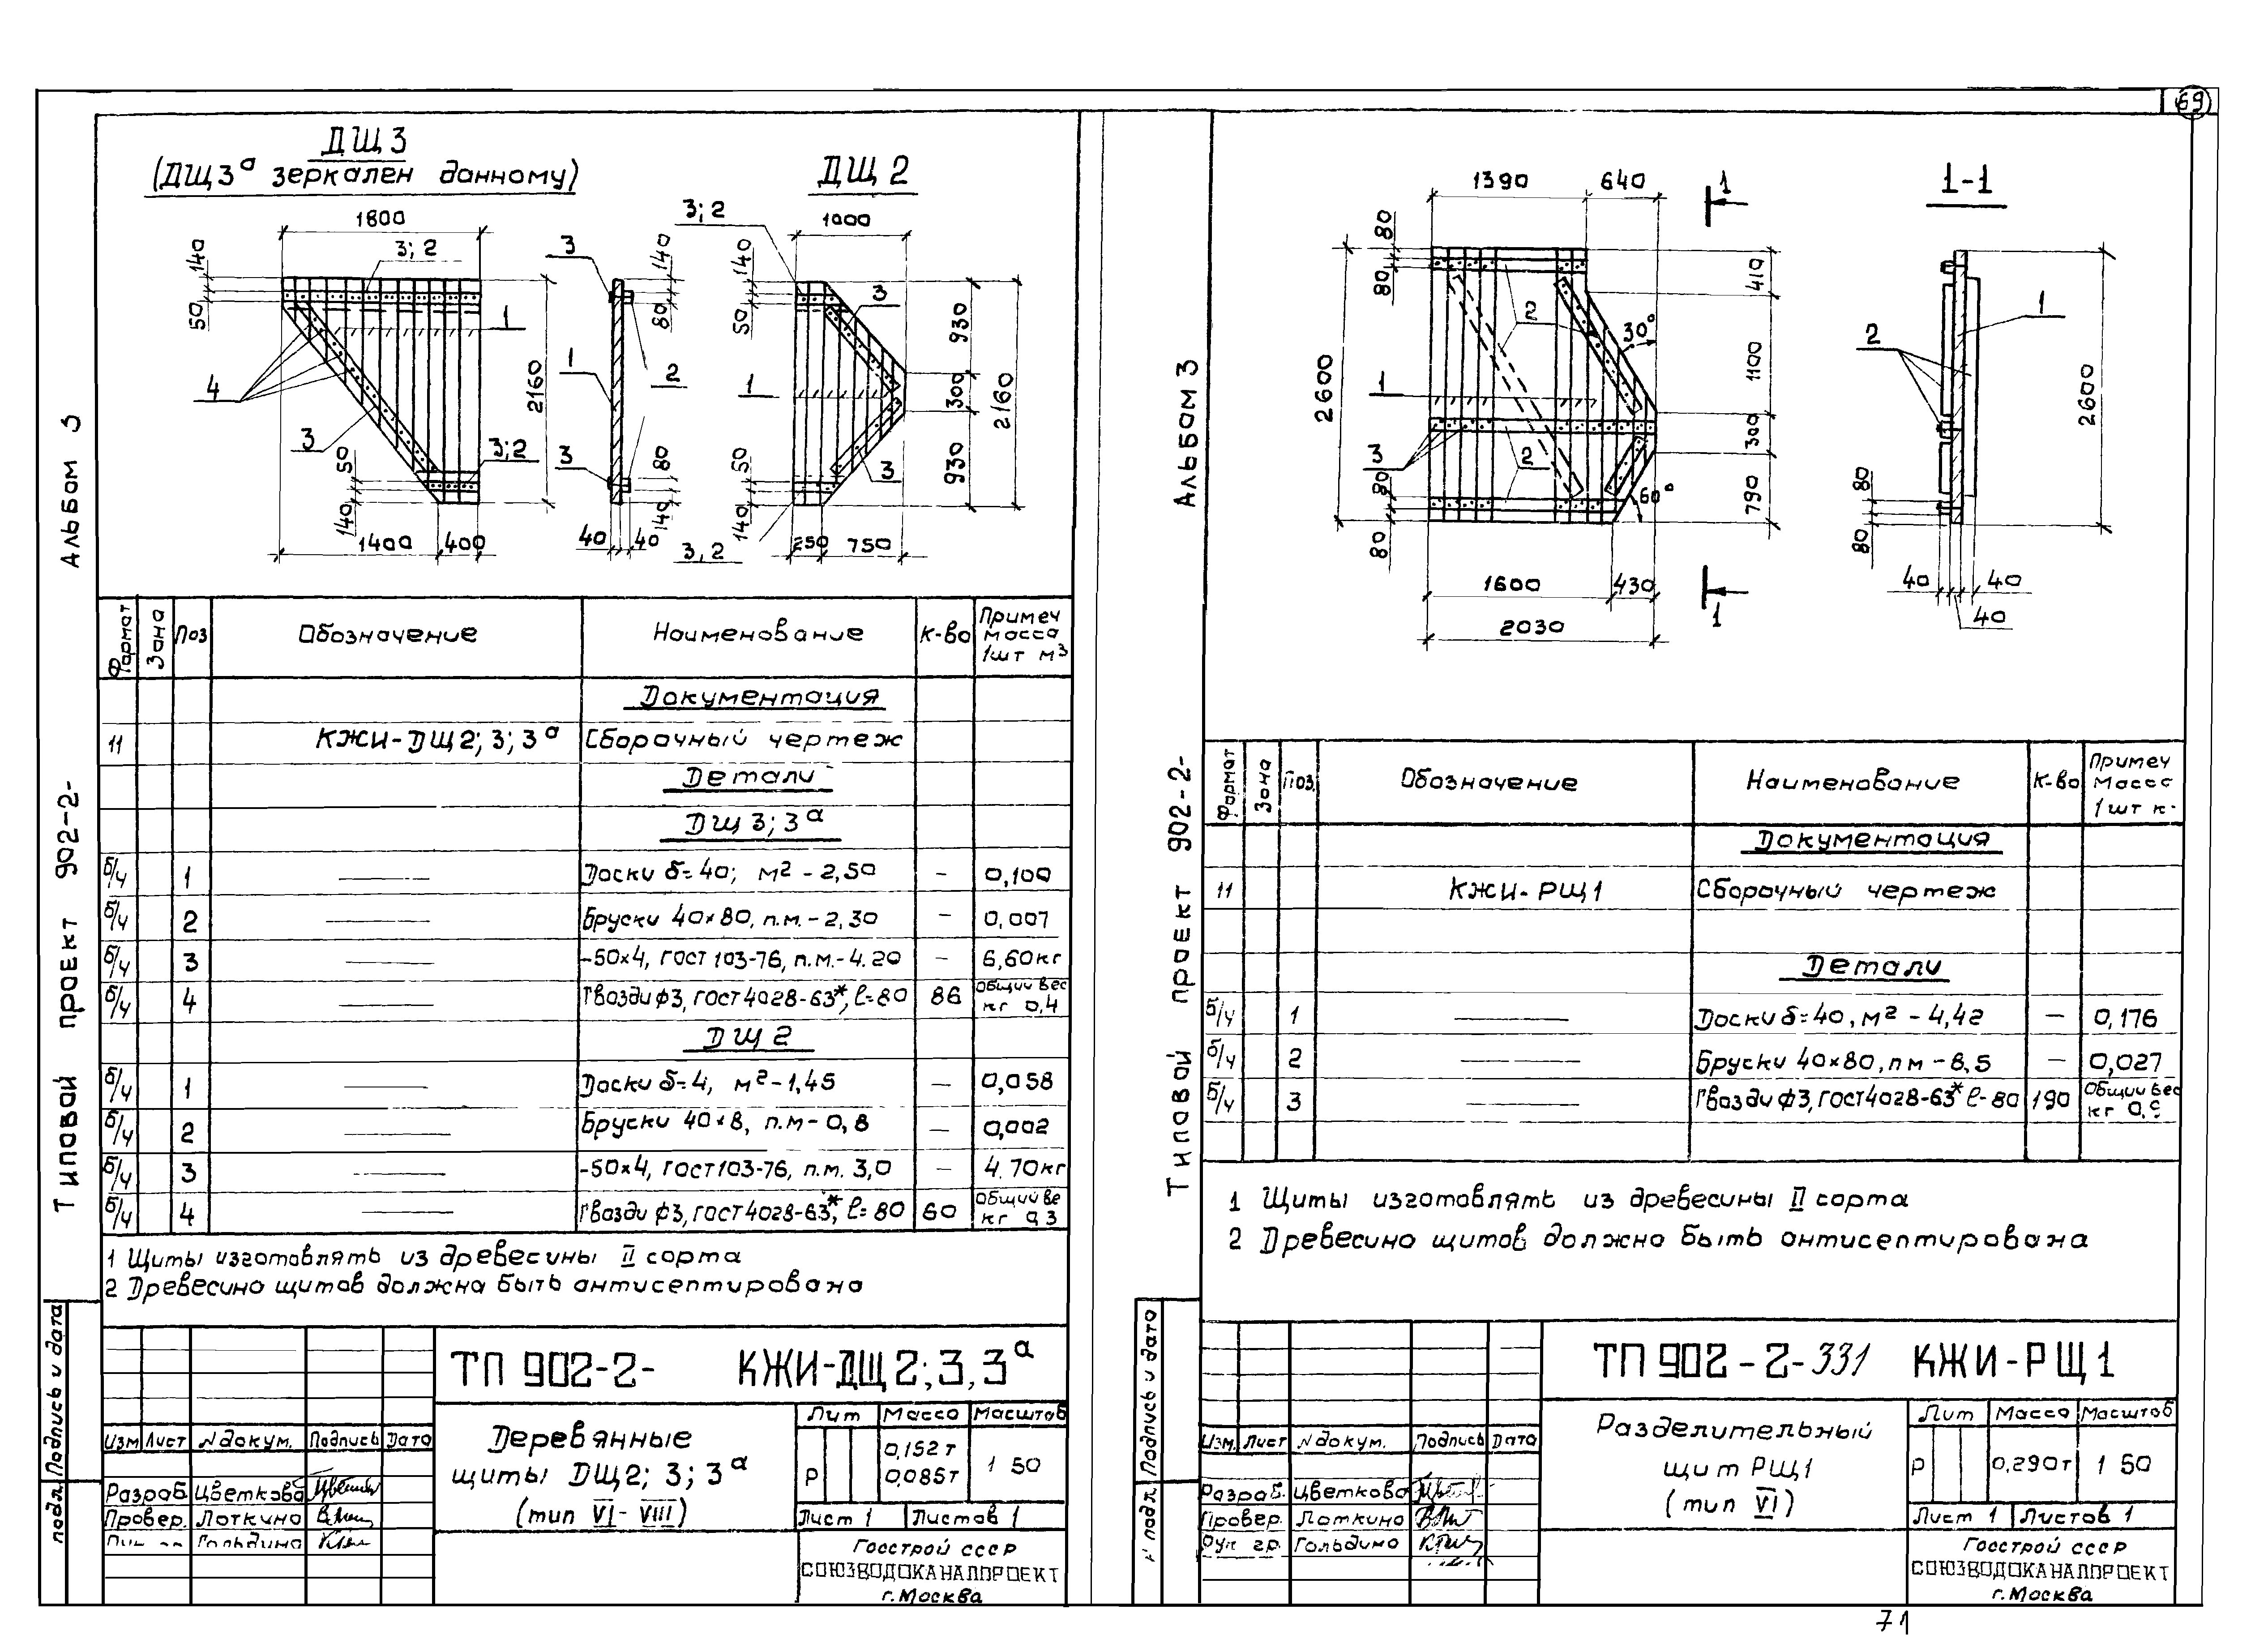 69
Альбом 3
Типовой проект 902-2-
Подпись и дата
подл.
ДЩ3
(ДЩ3а зеркален данному)
1800
3; 2
140
50
1
2160
4
3
50
3;2
140
1400
400
3
140
80
1
2
3
80
140
40
40
ДЩ2
3; 2
1000
140
50
3
930
1
300
2160
50
3
930
140
250
750
3; 2
Формат
Зона
Поз
Обозначение
Наименование
К-во
Примеч
масса
1шт м3
Документация
11 КЖИ-ДЩ2; 3; 3а Сборочный чертеж
Детали
ДЩ3; 3а
б/ч 1 Доски δ=40; м2 - 2,50 - 0,100
б/ч 2 Бруски 40×80, п.м. - 2,30 - 0,007
б/ч 3 -50×4, ГОСТ 103-76, п.м.- 4.20 - 6,60кг
б/ч 4 Гвозди ф3, ГОСТ 4028-63*, ℓ=80 86 Общий вес
кг 0,4
ДЩ2
б/ч 1 Доски δ=4, м2-1,45 - 0,058
б/ч 2 Бруски 40×8, п.м-0,8 - 0,002
б/ч 3 -50×4, ГОСТ 103-76, п.м. 3,0 - 4.70кг
б/ч 4 Гвозди ф3, ГОСТ 4028-63*, ℓ=80 60 Общий ве
кг 0,3
1 Щиты изготовлять из древесины II сорта
2 Древесина щитов должна быть антисептирована
ТП 902-2- КЖИ-ДЩ2; 3, 3а
Изм Лист N докум. Подпись Дата
Разраб. Цветкова
Провер. Лоткина
Гольдина
Деревянные
щиты ДЩ2; 3; 3а
(тип VI-VIII)
Лит Масса Масштаб
Р 0,152т 1 50
0,085т
Лист 1 Листов 1
Госстрой СССР
СОЮЗВОДОКАНАЛПРОЕКТ
г. Москва
Альбом 3
Типовой проект 902-2-
Подпись и дата
подл.
1390
640
1
80
80
410
2
30°
1100
2600
1
3
300
2
80
60°
790
80
1600
430
2030
1
1-1
1
2
2600
80
80
40
40
40
Формат
Зона
Поз.
Обозначение
Наименование
К-во
Примеч
Масса
1шт к.
Документация
11 КЖИ-РЩ1 Сборочный чертеж
Детали
б/ч 1 Доски δ=40, м2 - 4,42 - 0,176
б/ч 2 Бруски 40×80, пм - 8,5 - 0,027
б/ч 3 Гвозди ф3, ГОСТ 4028-63* ℓ-80 190 Общий вес
кг 0,9
1 Щиты изготовлять из древесины II сорта
2 Древесина щитов должна быть антисептирована
ТП 902-2-331 КЖИ-РЩ1
Изм. Лист N докум. Подпись Дата
Разраб. Цветкова
Провер. Лоткина
Рук гр. Гольдина
Разделительный
щит РЩ1
(тип VI)
Лит Масса Масштаб
Р 0,290т 1 50
Лист 1 Листов 1
Госстрой СССР
СОЮЗВОДОКАНАЛПРОЕКТ
г. Москва
71